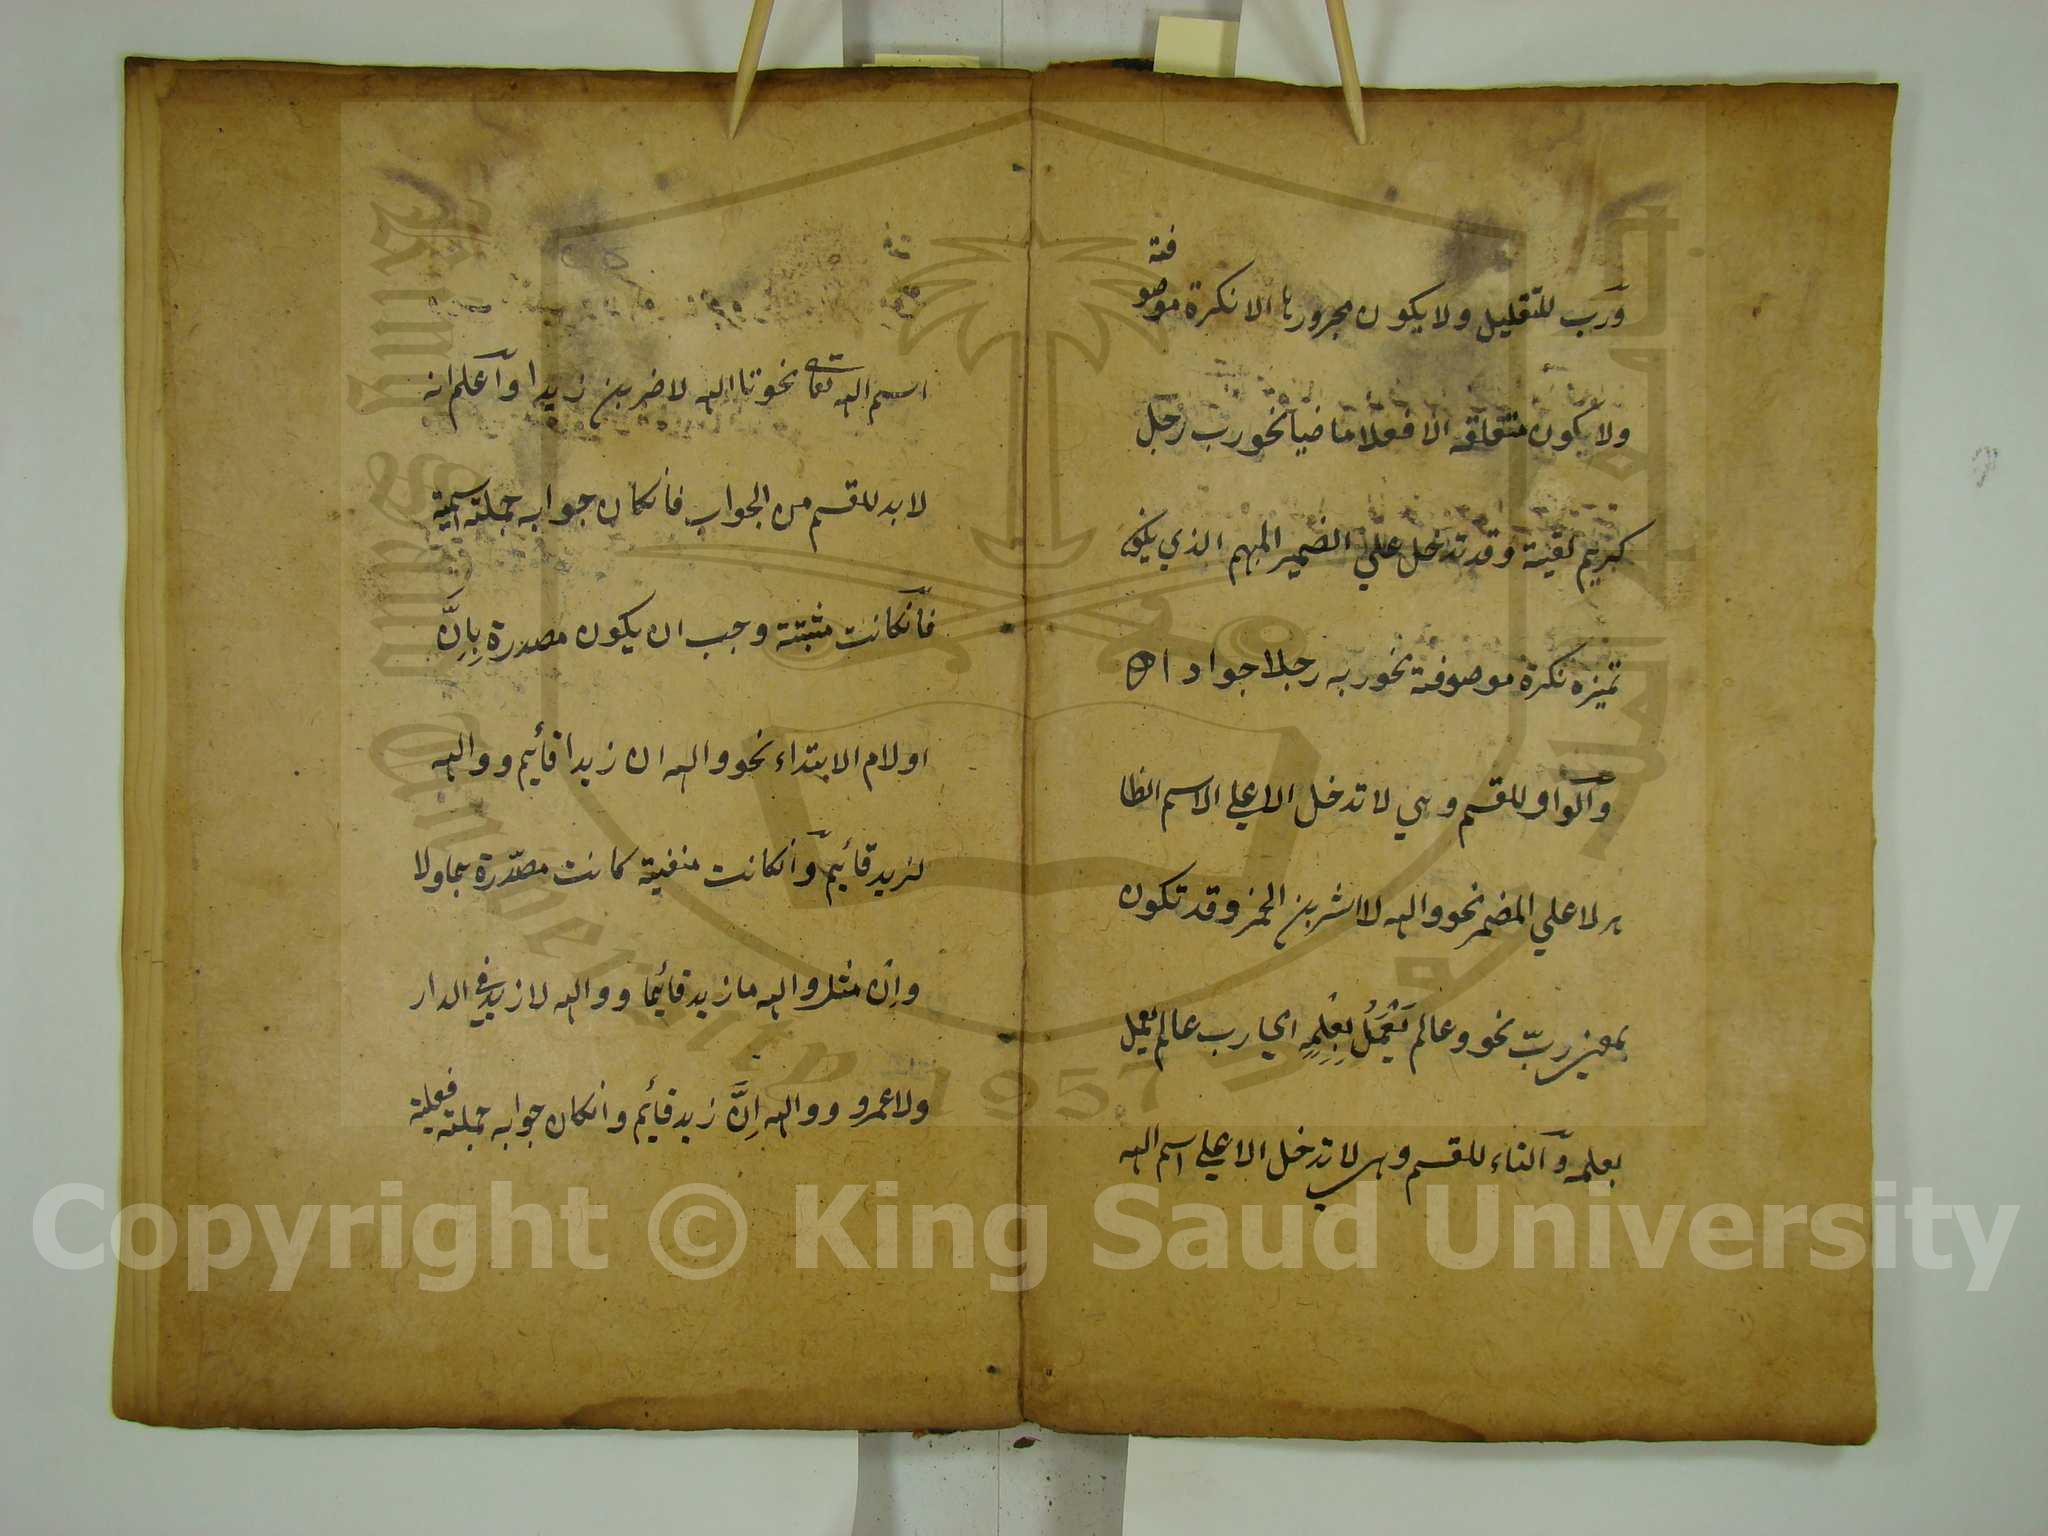 ورب للتقليل ولا يكون مجرورها الا نكرة موصوفة
ولا يكون متعلقه الا فعلا ماضيا نحو رب رجل
كريم لقيته وقد تدخل علي الضمير المبهم الذي يكون
تميزه نكرة موصوفة نحو ربه رجلا جوادا
والواو للقسم وهي لا تدخل الا علي الاسم الظا
هر لا علي المضمر نحو والله لا اشربن الخمر وقد تكون
بمعني ربّ نحو وعالم يَعْمَلُ بِعِلْمِهِ اي رب عالم يعمل
بعلمه والتاء للقسم وهي لا تدخل الا علي اسم الله
اسم الله تعالى نحو تالله لاضربن زيدا واعلم انه
لا بد للقسم من الجواب فانكان جوابه جملة اسمية
فانكانت مثبتة وجب ان يكون مصدرة بِاِنَّ
او لام الابتداء نحو والله ان زيدا قائيم ووالله
لزيد قائيم وانكانت منفية كانت مصدّرة بما ولا
وان مثل والله ما زيد قائيما ووالله لا زيد في الدار
ولا عمرو ووالله اِنَّ زيد قائيم وانكان جوابه جملة فعلية
King Saud University
1957
Copyright © King Saud University